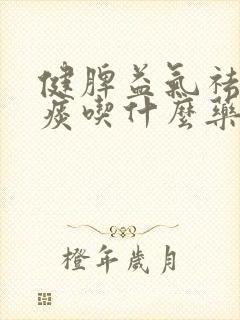 健脾益氣祛
痰喫什麼藥
橙年歲月